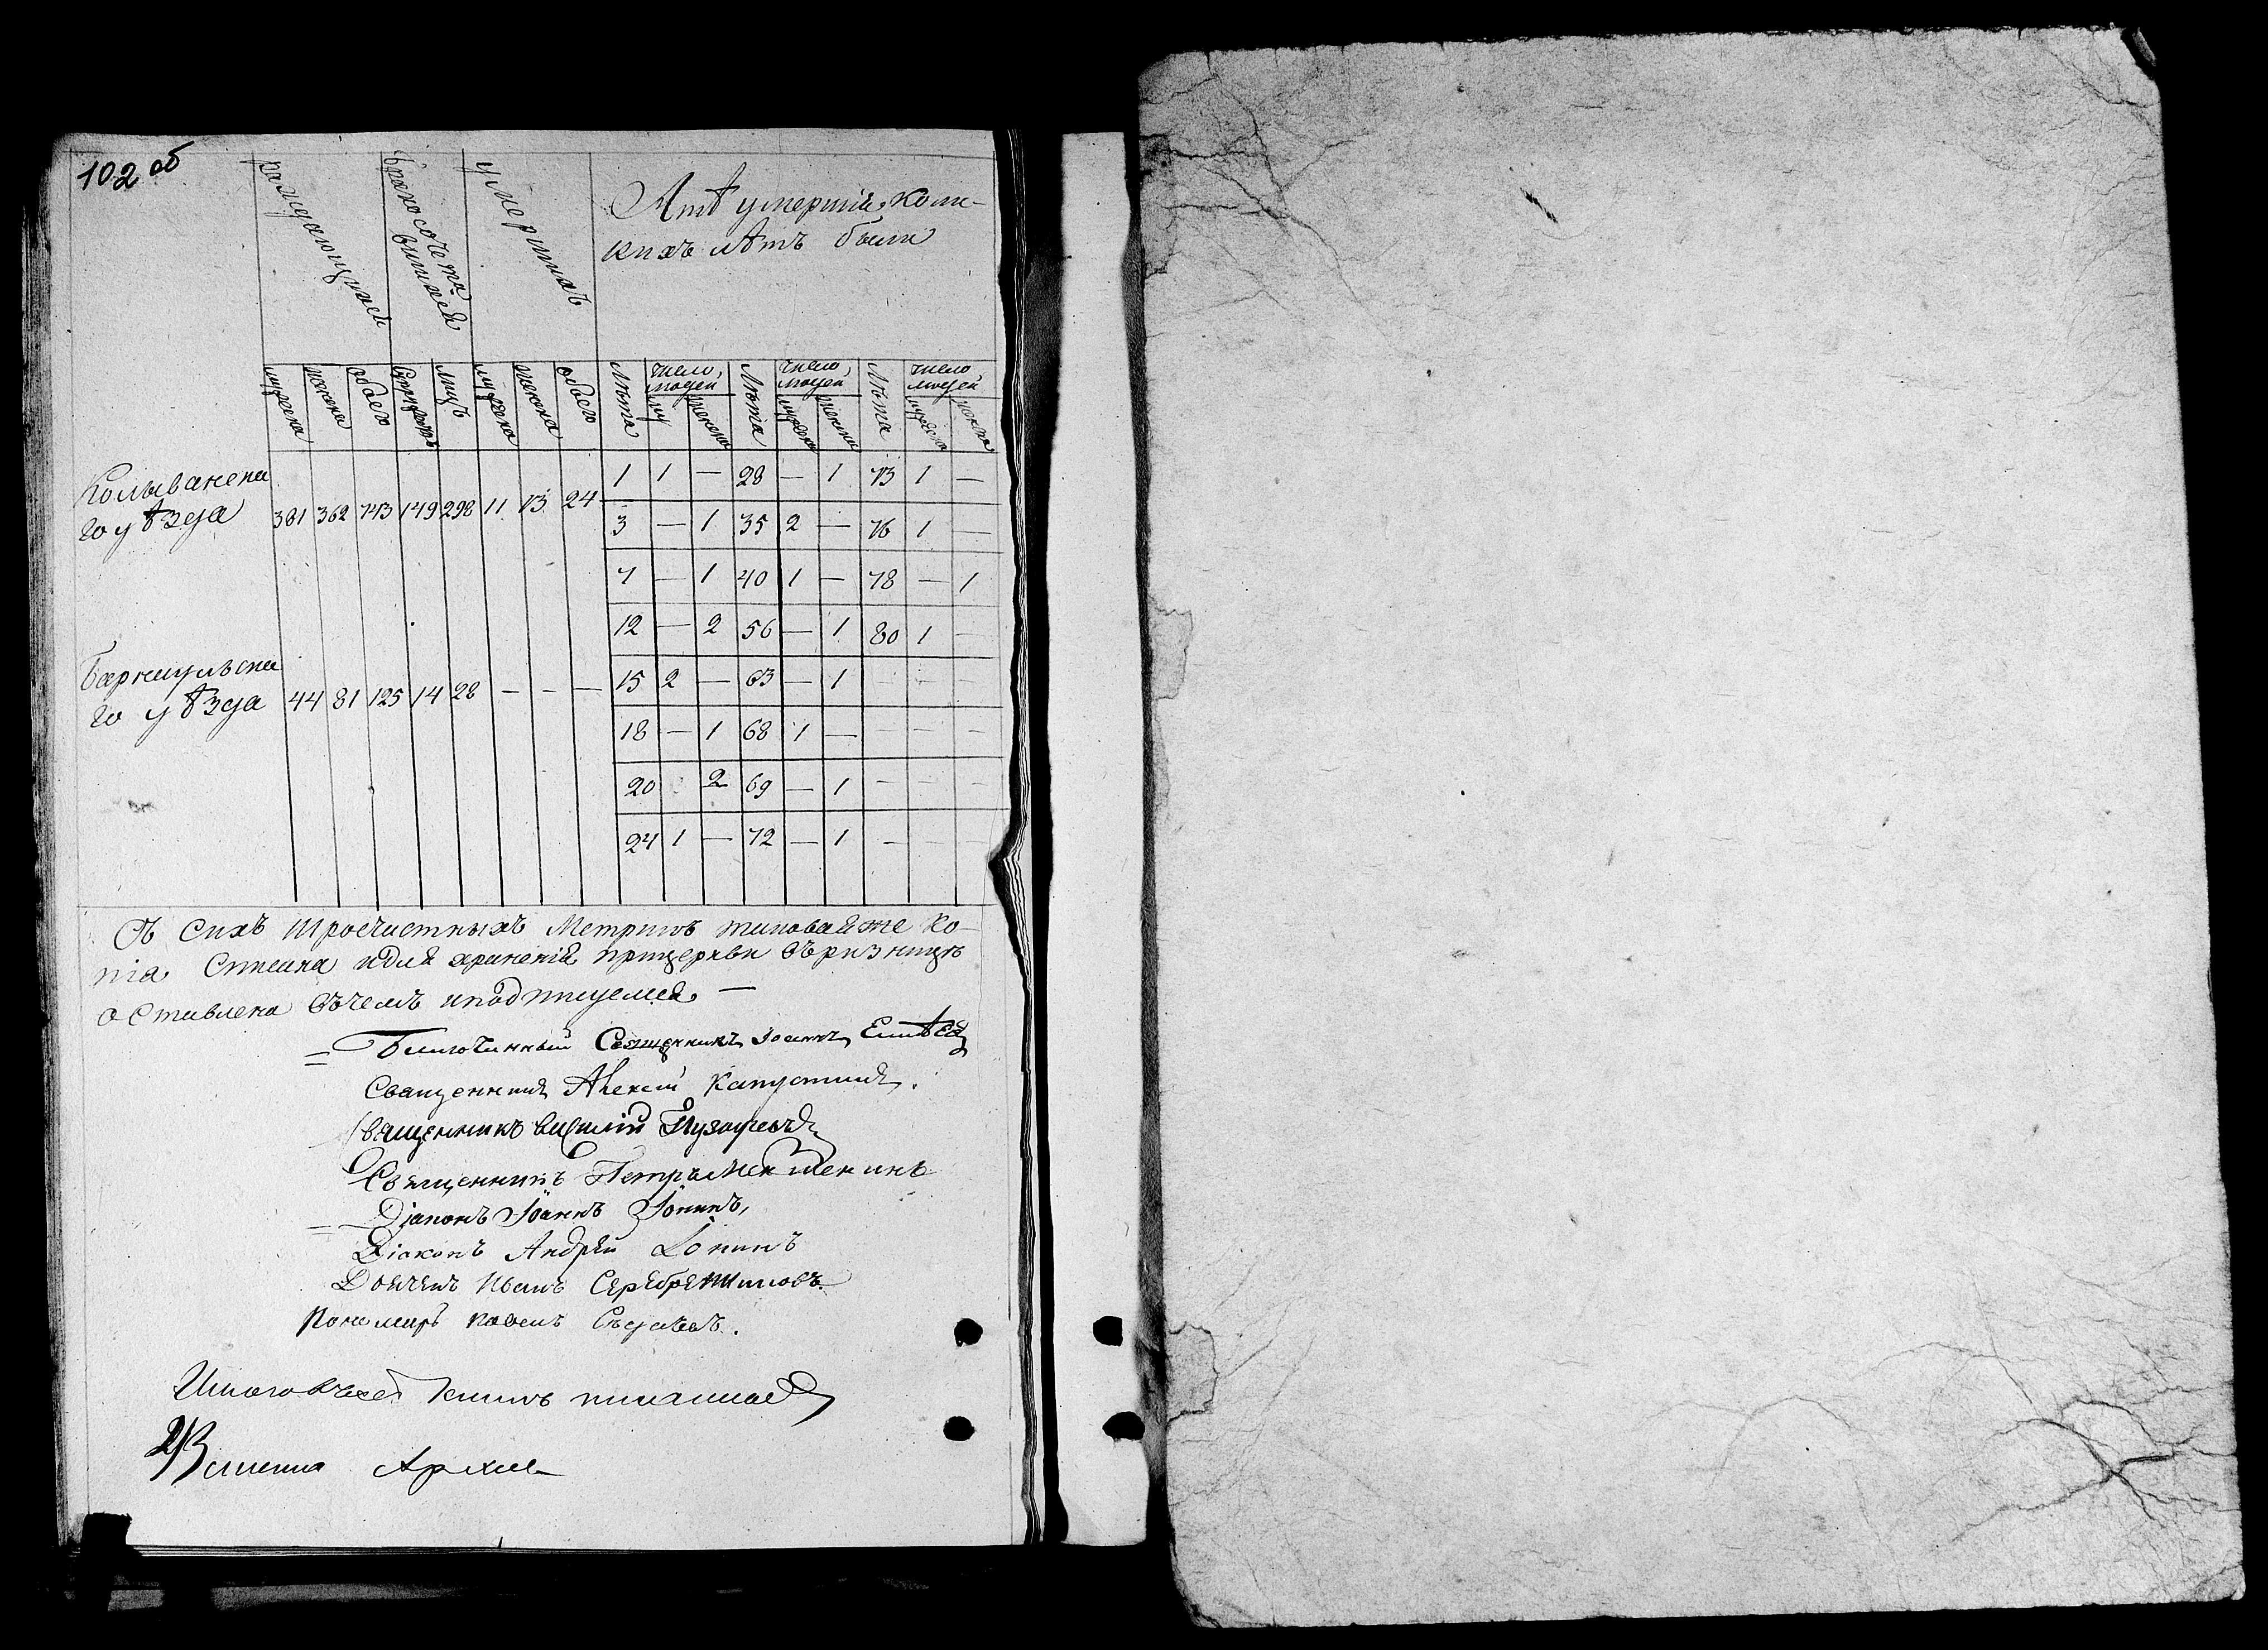 102 об
раждающихся
бракосочета
вшихся
умершихъ
Лѣтъ умершія коли-
кихъ лѣтъ были
мужеска женска обоего супружъ лицъ мужеска женска обоего Лѣта число людей муж женска Лѣта число людей мужеска женска Лѣта число людей мужеска женска
Колыванска
го уѣзда 381 362 743 149 298 11 13 24
1 1 — 28 — 1 73 1 —
3 — 1 35 2 — 76 1 —
7 — 1 40 1 — 78 — 1
12 — 2 56 — 1 80 1 —
Барнаульска
го уѣзда 44 81 125 14 28 — — —
15 2 — 63 — 1 — — —
18 — 1 68 1 — — — —
20 2 69 — 1 — — —
24 1 — 72 — 1 — — —
Съ Сихъ троечастныхъ Метрикъ таковая же ко-
піа Списана и для храненія при церкви въ ризницѣ
оставлена въ чемъ и подписуемся —
Благочинный Священникъ Іоаннъ
Священникъ Алексей Капустинъ.
Священникъ Василій
Священникъ Петръ
Діаконъ Іоаннъ Іонинъ,
Діаконъ Андрей Іонинъ
Дьячекъ Иванъ Серебренниковъ.
Пономарь Павелъ
Итого